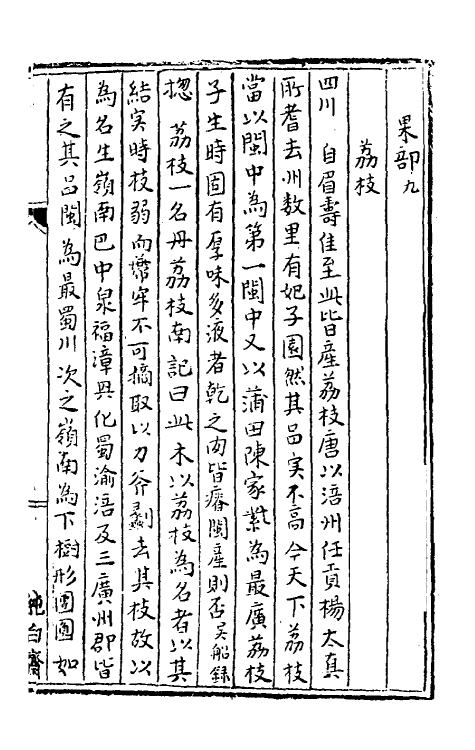 果部九
荔枝
四川　自眉嘉佳至此皆産荔枝唐以涪州任貢楊太真
所耆去州数里有妃子園然其品实不高今天下荔枝
當以閩中為第一閩中又以蒲田陳家紫為最廣荔枝
子生時固有厚味多液者乾之肉皆瘠閩産則否吴船録
揔　荔枝一名丹荔枝南記曰此木以荔枝為名者以其
結实時枝弱而蒂牢不可摘取以刀斧劙去其枝故以
為名生嶺南巴中泉福漳興化蜀渝涪及三廣州郡皆
有之其品閩為最蜀川次之嶺南為下樹形團圓如
純白齋